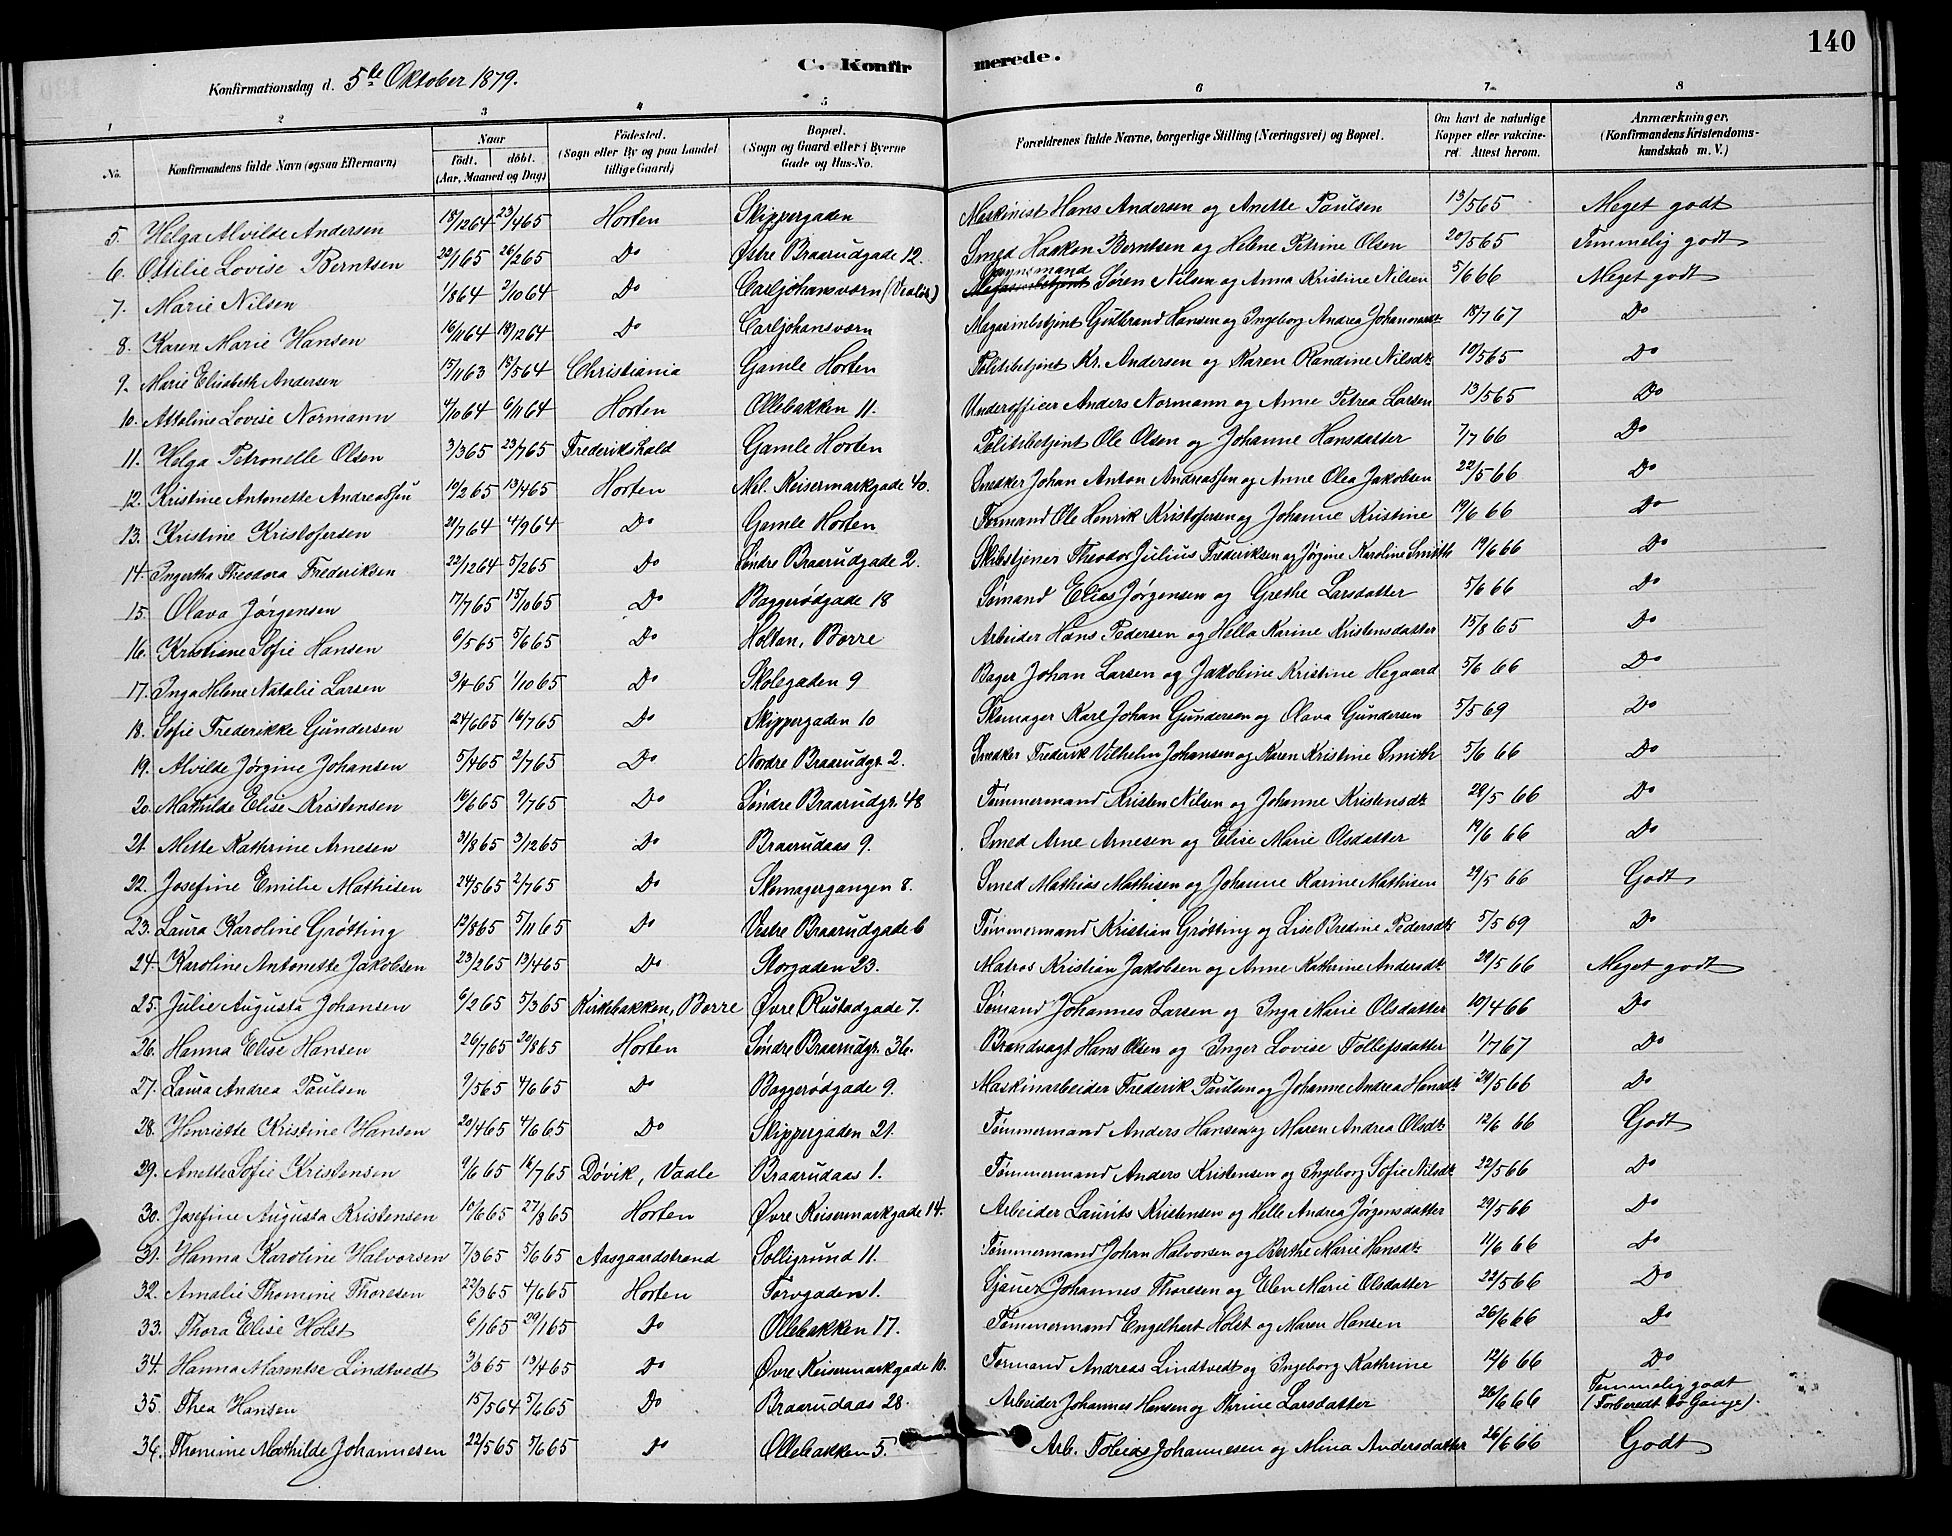 140
C. Konfirmerede.
Konfirmationsdag d. 5te Oktober 1879.
1 2 3 4 5 6 7 8
No. Konfirmandens fulde Navn (ogsaa Efternavn) Naar født. døbt. (Aar, Maaned og Dag) Fødested. (Sogn eller By og paa Landet tillige Gaard) Bopæl. (Sogn og Gaard eller i Byerne Gade og Hus-No. Forældrenes fulde Navne, borgerlige Stilling (Næringsvei) og Bopæl. Om havt de naturlige Kopper eller vakcineret. Attest herom. Anmærkninger. (Konfirmandens Kristendomskundskab m. V.)
5. Helga Alvilde Andersen 18/12 64 23/4 65 Horten Skippergaden Maskinist Hans Andersen og Anette Paulsen 13/5 65 Meget godt
6. Ottilie Lovise Berntsen 22/1 65 26/2 65 Do Østre Braarudgade 12. Smed Haakon Berntsen og Helene Petrine Olsen 20/5 65 Temmelig godt
7. Marie Nilsen 1/8 64 2/10 64 Do Carljohansværn (Vealøs) Søren Nilsen og Anna Kristine Nilsen 5/6 66 Meget godt
8. Karen Marie Hansen 16/11 64 18/12 64 Do Carljohansværn Magasinbetjent Gulbrand Hansen og Ingeborg Andrea Johannesdt. 18/7 67 Do
9. Marie Elisabeth Andersen 15/11 63 15/5 64 Christiania Gamle Horten Politibetjent Kr. Andersen og Karen Randine Nilsdt. 10/5 65 Do
10. Attoline Lovise Normann 4/10 64 6/11 64 Horten Ollebakken 11. Underofficer Anders Normann og Anne Petrea Larsen 13/5 65 Do
11. Helga Petronelle Olsen 3/3 65 23/7 65 Frederikshald Gamle Horten Politibetjent Ole Olsen og Johanne Hansdatter 7/7 66 Do
12. Kristine Antonette Andreassen 19/2 65 13/4 65 Horten Mel. Keisermarkgade 40. Snedker Johan Anton Andreassen og Anne Olea Jakobsen 22/5 66 Do
13. Kristine Kristofersen 21/7 64 4/9 64 Do Gamle Horten Formand Ole Henrik Kristofersen og Johanne Kristine 19/6 66 Do
14. Ingertha Theodora Frederiksen 22/12 64 5/2 65 Do Søndre Braarudgade 2. Skibstjener Theodor Julius Frederiksen og Jørgine Karoline Smith 19/6 66 Do
15. Olava Jørgensen 17/7 65 15/10 65 Do Baggerødgade 18 Sømand Elias Jørgensen og Grethe Larsdatter 5/6 66 Do
16. Kristiane Sofie Hansen 6/5 65 5/6 65 Do Holtan, Borre Arbeider Hans Pedersen og Hella Karine Kristensdatter 15/8 65 Do
17. Inga Helene Natalie Larsen 3/4 65 1/10 65 Do Skolegaden 9 Bager Johan Larsen og Jakobine Kristine Hegaard 5/6 66 Do
18. Sofie Frederikke Gundersen 24/6 65 16/7 65 Do Skippergaden 10 Skomager Karl Johan Gundersen og Olava Gundersen 5/5 69 Do
19. Alvilde Jørgine Johansen 5/4 65 2/7 65 Do Nordre Braarudgr. 2. Snedker Frederik Vilhelm Johansen og Karen Kristine Smith 5/6 66 Do
20. Mathilde Elise Kristensen 16/6 65 9/7 65 Do Søndre Braarudgr. 48 Tømmermand Kristen Nilsen og Johanne Kristensdt. 28/5 66 Do
21. Mette Kathrine Arnesen 31/8 65 3/12 65 Do Braarudaas 9. Smed Arne Arnesen og Elise Marie Olsdatter 19/6 66 Do
22. Josefine Emilie Mathisen 24/5 65 2/7 65 Do Skomagergangen 8. Smed Mathias Mathisen og Johanne Karine Mathisen 29/5 66 Godt
23. Laura Karoline Grøtting 12/8 65 5/11 65 Do Vestre Braarudgade 6 Tømmermand Kristian Grøtting og Lise Bredine Pedersdt. 5/5 69 Do
24. Karoline Antonette Jakobsen 23/2 65 13/4 65 Do Storgaden 23. Matros Kristian Jakobsen og Anne Kathrine Andersdt. 29/5 66 Meget godt
25. Julie Augusta Johansen 6/2 65 5/3 65 Kirkebakken, Borre Øvre Rustadgade 7. Sømand Johannes Larsen og Inga Marie Olsdatter 10/4 66 Do
26. Hanna Elise Hansen 26/7 65 20/8 65 Horten Søndre Braarudgr. 36. Brandvagt Hans Olsen og Inger Lovise Tollefsdatter 1/7 67 Do
27. Laura Andrea Paulsen 9/5 65 4/6 65 Do Baggerødgade 9. Maskinarbeider Frederik Paulsen og Johanne Andrea Hansdt. 29/5 66 Do
28. Henriette Kristine Hansen 20/4 65 4/6 65 Do Skippergaden 21. Tømmermand Anders Hansen og Maren Andrea Olsdt. 12/6 66 Godt
29. Anette Sofie Kristensen 9/6 65 16/7 65 Døvik, Vaale Braarudaas 1. Tømmermand Anders Kristensen og Ingeborg Sofie Nilsdt. 22/5 66 Do
30. Josefine Augusta Kristensen 10/6 65 27/8 65 Horten Øvre Keisermarkgade 14. Arbeider Laurits Kristensen og Helle Andrea Jørgensdatter 29/5 66 Do
31. Hanna Karoline Halvorsen 7/3 65 5/6 65 Aasgaardstrand Solligrund 11. Tømmermand Johan Halvorsen og Berthe Marie Hansdt. 11/6 66 Do
32. Amalie Thomine Thoresen 22/3 65 4/6 65 Horten Torvgaden 1. Gjauer Johannes Thoresen og Elen Marie Olsdatter 22/5 66 Do
33. Thora Elise Holst 6/1 65 29/1 65 Do Ollebakken 17. Tømmermand Engelhart Holst og Maren Hansen 26/6 66 Do
34. Hanna Marentse Lindtvedt 3/3 65 13/4 65 Do Øvre Keisermarkgade 10. Formand Andreas Lindtvedt og Ingeborg Kathrine 12/6 66 Do
35. Thea Hansen 15/5 64 5/6 65 Do Braarudaas 28. Arbeider Johannes Hansen og Thrine Larsdatter 26/6 66 Temmelig godt (Forberedt to Gange).
36. Thomine Mathilde Johannesen 22/5 65 5/6 65 Do Ollebakken 5. Arb. Tobias Johannesen og Mina Andersdatter 26/6 66 Godt